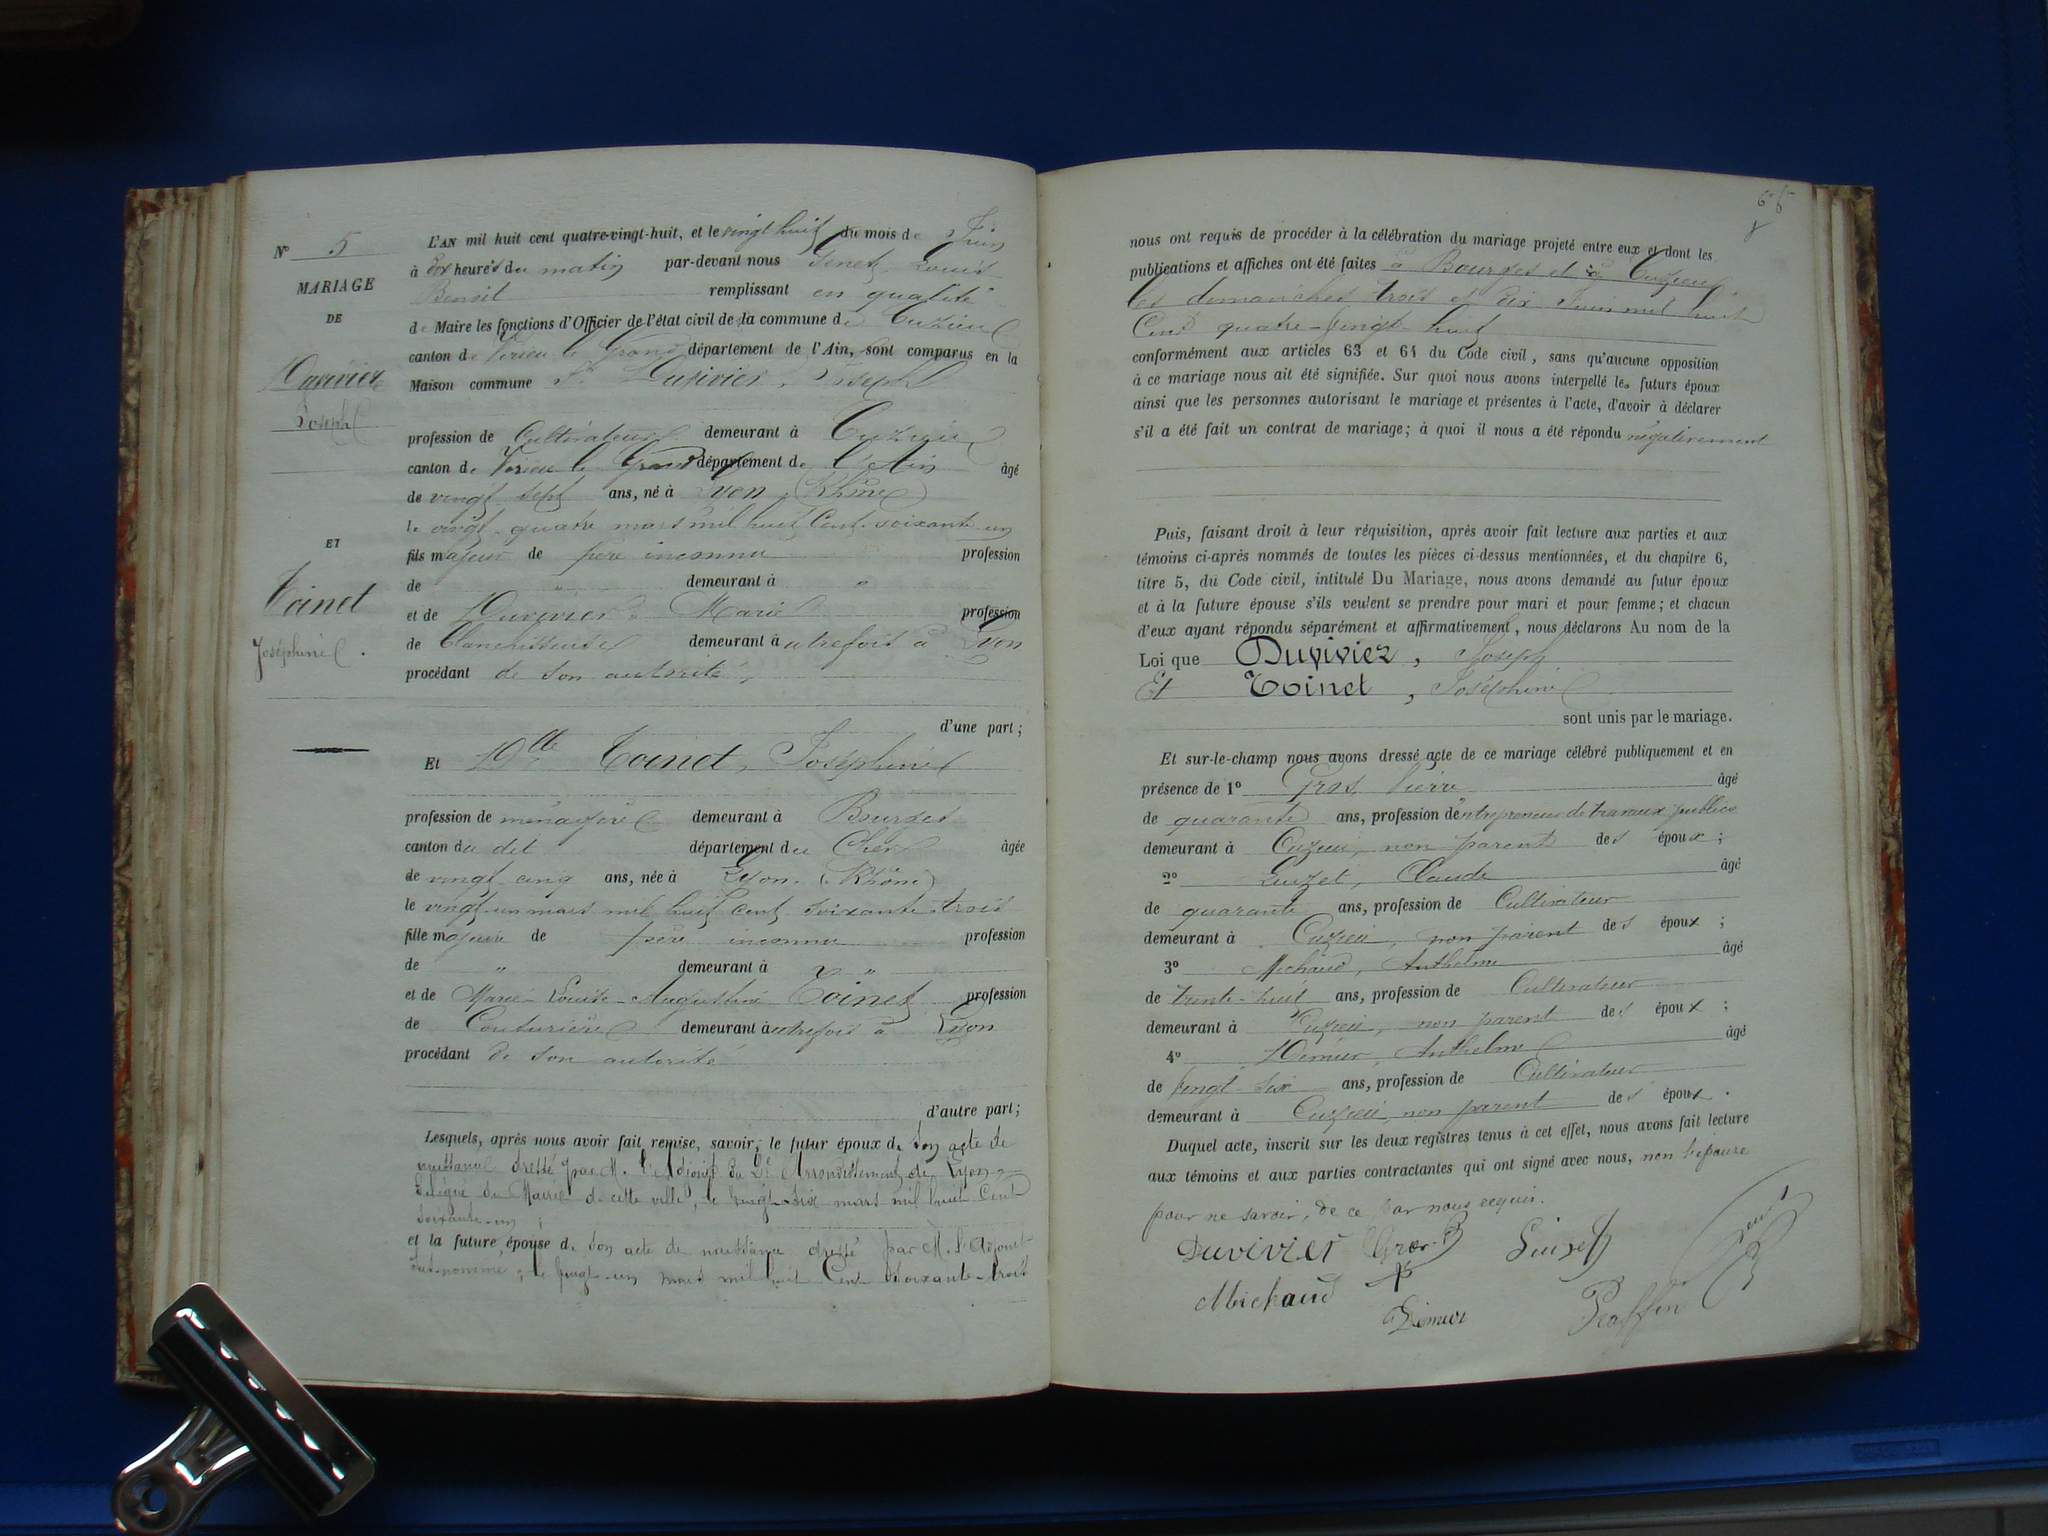 N° 5
MARIAGE
DE
Duvivier
Joseph
ET
Toinet
Joséphine.
L'AN mil huit cent quatre-vingt-huit, et le vingt huit du mois de Juin
à dix heures du matin par-devant nous Genet Louis
Benoît remplissant en qualité
de Maire les fonctions d'Officier de l'état civil de la commune de Cuzieu
canton de Virieu le Grand département de l'Ain, sont comparus en la
Maison commune Sr Duvivier, Joseph
profession de Cultivateur demeurant à Cuzieu
canton de Virieu le Grand département de l'Ain âgé
de vingt sept ans, né à Lyon (Rhône)
le vingt-quatre mars mil huit cent soixante un
fils majeur de père inconnu profession
de " demeurant à "
et de Duvivier Marie profession
de blanchisseuse demeurant autrefois à Lyon
procédant de son autorité
d'une part;
Et Dlle Toinet, Joséphine
profession de ménagère demeurant à Bourges
canton du dit département du Cher âgée
de vingt cinq ans, née à Lyon (Rhône)
le vingt-un mars mil huit cent soixante trois
fille majeure de père inconnu profession
de " demeurant à "
et de Marie-Louise-Augustine Toinet profession
de Couturière demeurant autrefois à Lyon
procédant de son autorité
d'autre part;
Lesquels, après nous avoir fait remise, savoir; le futur époux de son acte de
naissance dressé par M. l'Adjoint du 2e Arrondissement de Lyon,
délégué du Maire de cette ville, le vingt-six mars mil huit cent
soixante-un;
et la future épouse de son acte de naissance dressé par M. l'Adjoint
susnommé, le vingt-un mars mil huit cent soixante-trois
65
nous ont requis de procéder à la célébration du mariage projeté entre eux et dont les
publications et affiches ont été faites à Bourges et à Cuzieu
les dimanches trois et dix Juin mil huit
cent quatre-vingt huit
conformément aux articles 63 et 64 du Code civil, sans qu'aucune opposition
à ce mariage nous ait été signifiée. Sur quoi nous avons interpellé les futurs époux
ainsi que les personnes autorisant le mariage et présentes à l'acte, d'avoir à déclarer
s'il a été fait un contrat de mariage; à quoi il nous a été répondu négativement
Puis, faisant droit à leur réquisition, après avoir fait lecture aux parties et aux
témoins ci-après nommés de toutes les pièces ci-dessus mentionnées, et du chapitre 6,
titre 5, du Code civil, intitulé Du Mariage, nous avons demandé au futur époux
et à la future épouse s'ils veulent se prendre pour mari et pour femme; et chacun
d'eux ayant répondu séparément et affirmativement, nous déclarons Au nom de la
Loi que Duvivier, Joseph
Et Toinet, Joséphine
sont unis par le mariage.
Et sur-le-champ nous avons dressé acte de ce mariage célébré publiquement et en
présence de 1° Gros, Pierre âgé
de quarante ans, profession d'entrepreneur de travaux publics
demeurant à Cuzieu, non parent des époux;
2° Luizet, Claude âgé
de quarante ans, profession de Cultivateur
demeurant à Cuzieu, non parent des époux;
3° Michaud, Anthelme âgé
de trente-huit ans, profession de Cultivateur
demeurant à Cuzieu, non parent des époux;
4° Démier, Anthelme âgé
de vingt-six ans, profession de Cultivateur
demeurant à Cuzieu, non parent des époux.
Duquel acte, inscrit sur les deux registres tenus à cet effet, nous avons fait lecture
aux témoins et aux parties contractantes qui ont signé avec nous, non l'épouse
pour ne savoir, de ce par nous requis.
Duvivier Gros P Luizet
Michaud Démier